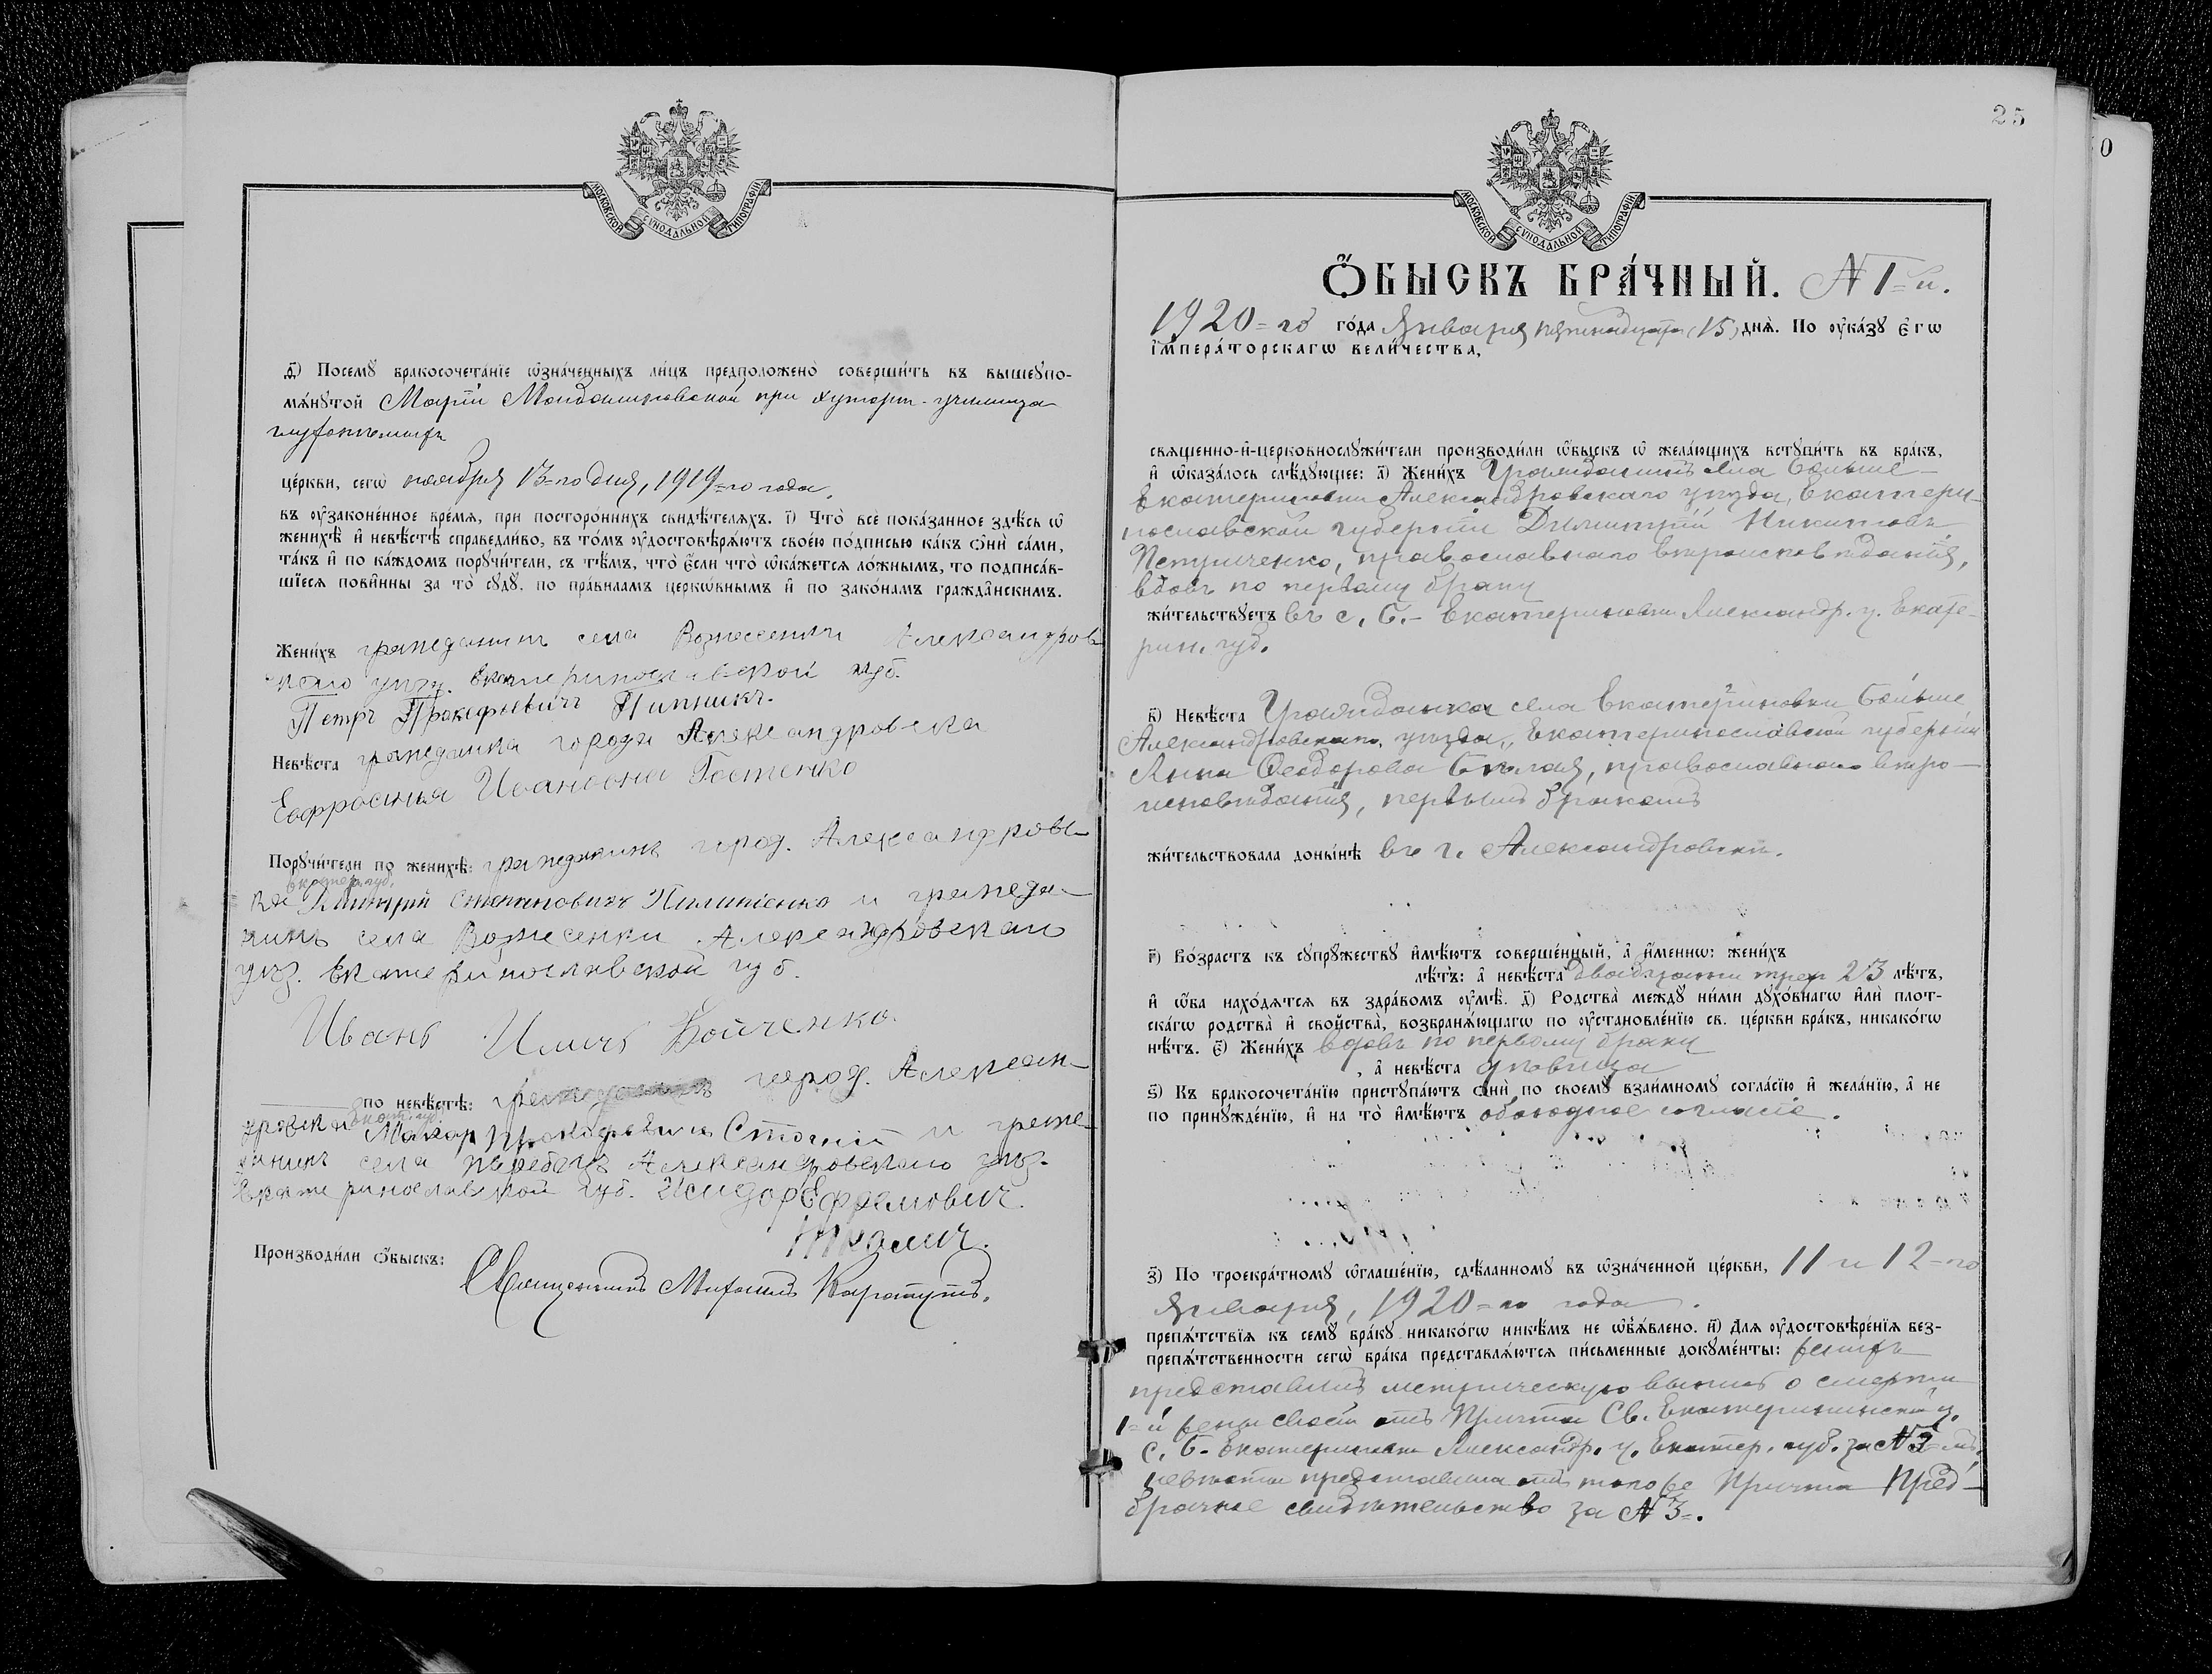 МОСКОВСКОЙ СѴНОДАЛЬНОЙ ТИПОГРАФІИ
д҃) Посемꙋ̀ бракосочета́нїе ѡ҆зна́ченныхъ ли́цъ предположено̀ соверши́ть въ вышеꙋпо-
мѧ́нꙋтой Маріи Магдалиновской при хуторѣ-училища
глухонѣмыхъ
це́ркви, сегѡ̀ ноября 13=го дня, 1919=го года,
въ ᲂу҆зако́ненное вре́мѧ, при посторо́ннихъ свидѣ́телѧхъ. і҃) Что̀ всѐ пока́занное здѣ́сь ѡ҆
женихѣ̀ и҆ невѣ́стѣ справедли́во, въ то́мъ ᲂу҆достовѣрѧ́ютъ свое́ю по́дписью ка́къ ѻ҆нѝ са́ми,
та́къ и҆ по ка́ждомъ порꙋчи́тели, съ тѣ́мъ, что̀ є҆́сли что̀ ѡ҆ка́жетсѧ ло́жнымъ, то подписа́в-
шїесѧ пови́нны за то̀ сꙋдꙋ̀ по пра́виламъ церко́внымъ и҆ по зако́намъ гражда̑нскимъ.
Жени́хъ гражданинъ села Вознесенки Александров
скаго уѣзд. Екатеринославской губ.
Петръ Прокофьевичъ Пипникъ.
Невѣ́ста гражданка города Александровска
Евфросинья Ивановна Гостенко
Порꙋчи́тели по женихѣ̀: гражданинъ город. Александровс-
Екатер. губ.
ка Степановичъ и гражда-
нинъ села Вознесенки Александровскаго
уѣз. Екатеринославской губ.
Иванъ Иличъ Бойченко.
по невѣ́стѣ: город. Алексан-
дровска Екат. губ. Макар Прокофьевичъ и граж-
данинъ села Александровскаго уѣз.
Екатеринославской губ. Исидор Ефремович
Производи́ли ѻ҆́быскъ: Священникъ Михаилъ
25
0
МОСКОВСКОЙ СѴНОДАЛЬНОЙ ТИПОГРАФІИ
Ѻ҆́БЫСКЪ БРА́ЧНЫЙ. № 1=й.
1920=го го́да Января пятнадцата (15) днѧ̀. По ᲂу҆ка́зꙋ Є҆гѡ̀
І҆мпера́торскагѡ вели́чества,
свѧщенно-и҆-церковнослꙋжи́тели производи́ли ѻ҆́быскъ ѡ҆ жела́ющихъ встꙋпи́ть въ бра́къ,
и҆ ѡ҆каза́лось слѣ́дꙋющее: а҃) Жени́хъ Гражданинъ села Больше-
Екатериновки Александровскаго уѣзда, Екатери-
нославской губерніи Димитрій Никитовъ
Петриченко, православнаго вѣроисповѣданія,
вдовъ по первому браку
жи́тельствꙋетъ въ с. Б.-Екатериновки Александр. у. Екате-
рин. губ.
в҃) Невѣ́ста Гражданка села Екатериновки Больше
Александровскаго, уѣзда, Екатеринославской губерніи
Анна Ѳеодорова Бѣлая, православнаго вѣро-
исповѣданія, первымъ бракомъ
жи́тельствовала доны́нѣ въ г. Александровскѣ.
г҃) Во́зрастъ къ сꙋпрꙋ́жествꙋ и҆мѣ́ютъ соверше́нный, а҆ и҆́менно: жени́хъ
лѣ́тъ: а҆ невѣ́ста двадцати трех 23 лѣ́тъ,
и҆ ѻ҆́ба нахо́дѧтсѧ въ здра́вомъ ᲂу҆мѣ̀. д҃) Родства̀ междꙋ̀ ни́ми дꙋхо́внагѡ и҆лѝ плот-
ска́гѡ родства̀ и҆ сво́йства̀, возбранѧ́ющагѡ по ᲂу҆становле́нїю св. це́ркви бра́къ, никако́гѡ
нѣ́тъ. є҃) Жени́хъ вдовъ по первому браку
, а҆ невѣ́ста дѣвица
ѕ҃) Къ бракосочета́нїю пристꙋпа́ютъ ѻ҆нѝ по своемꙋ̀ взаи́мномꙋ согла́сїю и҆ жела́нїю, а҆ не
по принꙋжде́нїю, и҆ на то̀ и҆мѣ́ютъ обоюдное согласіе.
з҃) По троекра́тномꙋ ѡ҆глаше́нїю, сдѣ́ланномꙋ въ ѡ҆зна́ченной це́ркви, 11 и 12=го
Января, 1920=го года.
препѧ́тствїѧ къ семꙋ̀ бра́кꙋ никако́гѡ никѣ́мъ не ѡ҆б̾ѧ́влено. и҃) Для ᲂу҆достовѣре́нїѧ без-
препѧ́тственности сегѡ̀ бра́ка представлѧ́ютсѧ пи́сьменные докꙋме́нты: женихъ
представилъ метрическую выпись о смерти
1=й жены своей отъ Причта Св. Екатерининской ц.
с. Б. Екатериновки Александр. у. Екатер. губ. за №
невѣста представила отъ того же Причта Пред-
брачное свидѣтельство за № 3=.